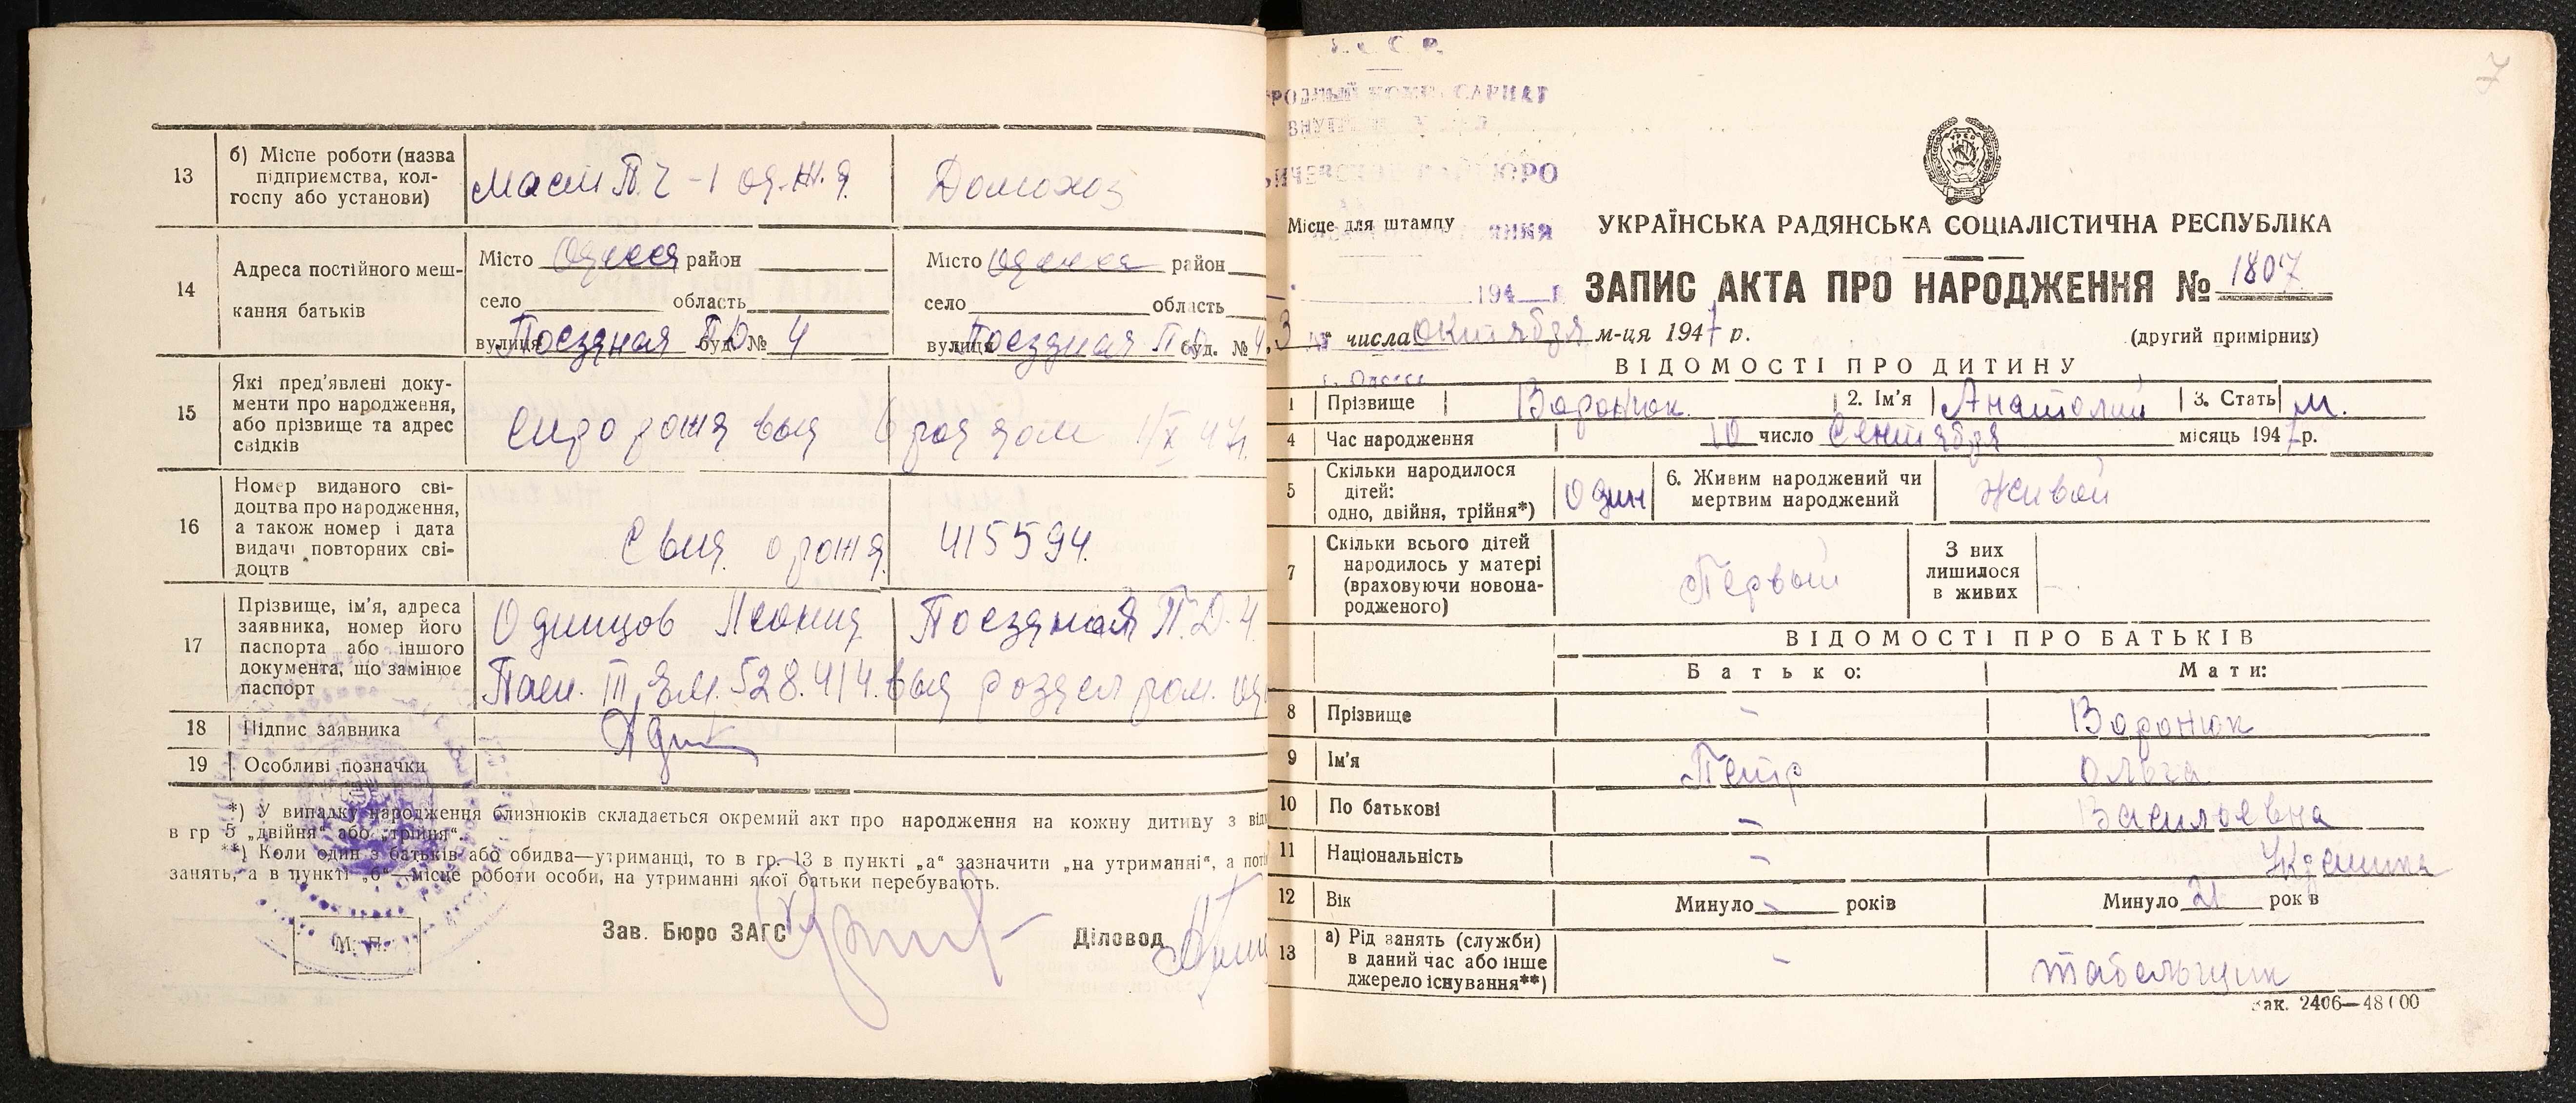 13
б) Місце роботи (назва
підприємства, кол-
госпу або установи)
Домохоз
14
Адреса постійного меш-
кання батьків
Місто Одесса район
село область
вулиця Поездная П.Д. буд. № 4
Місто Одесса район
село область
вулиця Поездная П.Д. буд. № 4.
15
Які пред'явлені доку-
менти про народження,
або прізвище та адрес
свідків
16
Номер виданого сві-
доцтва про народження,
а також номер і дата
видачі повторних сві-
доцтв
Свид. о рожд. 415594.
17
Прізвище, ім'я, адреса
заявника, номер його
паспорта або іншого
документа, що замінює
паспорт
Одинцов Леонид Поездная П.Д-4.
Пасп. III 528.414. выд
18
Підпис заявника
19
Особливі позначки
*) У випадку народження близнюків складається окремий акт про народження на кожну дитину з
в гр 5 „двійня“ або „трійня“.
**) Коли один з батьків або обидва—утриманці, то в гр. 13 в пункті „а“ зазначити „на утриманні“, а
занять, а в пункті „б“—місце роботи особи, на утриманні якої батьки перебувають.
М. П.
Зав. Бюро ЗАГС
Діловод
7
Місце для штампу
194 г
УКРАЇНСЬКА РАДЯНСЬКА СОЦІАЛІСТИЧНА РЕСПУБЛІКА
ЗАПИС АКТА ПРО НАРОДЖЕННЯ № 1807
3 числа октября м-ця 1947 р.
(другий примірник)
г. Одесса
ВІДОМОСТІ ПРО ДИТИНУ
1 Прізвище Воронюк 2. Ім'я Анатолий 3. Стать м.
4 Час народження 10 число Сентября місяць 1947 р.
5 Скільки народилося
дітей:
одно, двійня, трійня*)
один
6. Живим народжений чи
мертвим народжений
живой
7 Скільки всього дітей
народилось у матері
(враховуючи новона-
родженого)
Первый
З них
лишилося
в живих
–
ВІДОМОСТІ ПРО БАТЬКІВ
Батько: Мати:
8 Прізвище – Воронюк
9 Ім'я Петр Ольга
10 По батькові – Василоевна
11 Національність –
12 Вік Минуло – років Минуло 21 років
13 а) Рід занять (служби)
в даний час або інше
джерело існування**)
– табельщик
Зак. 2406—48100